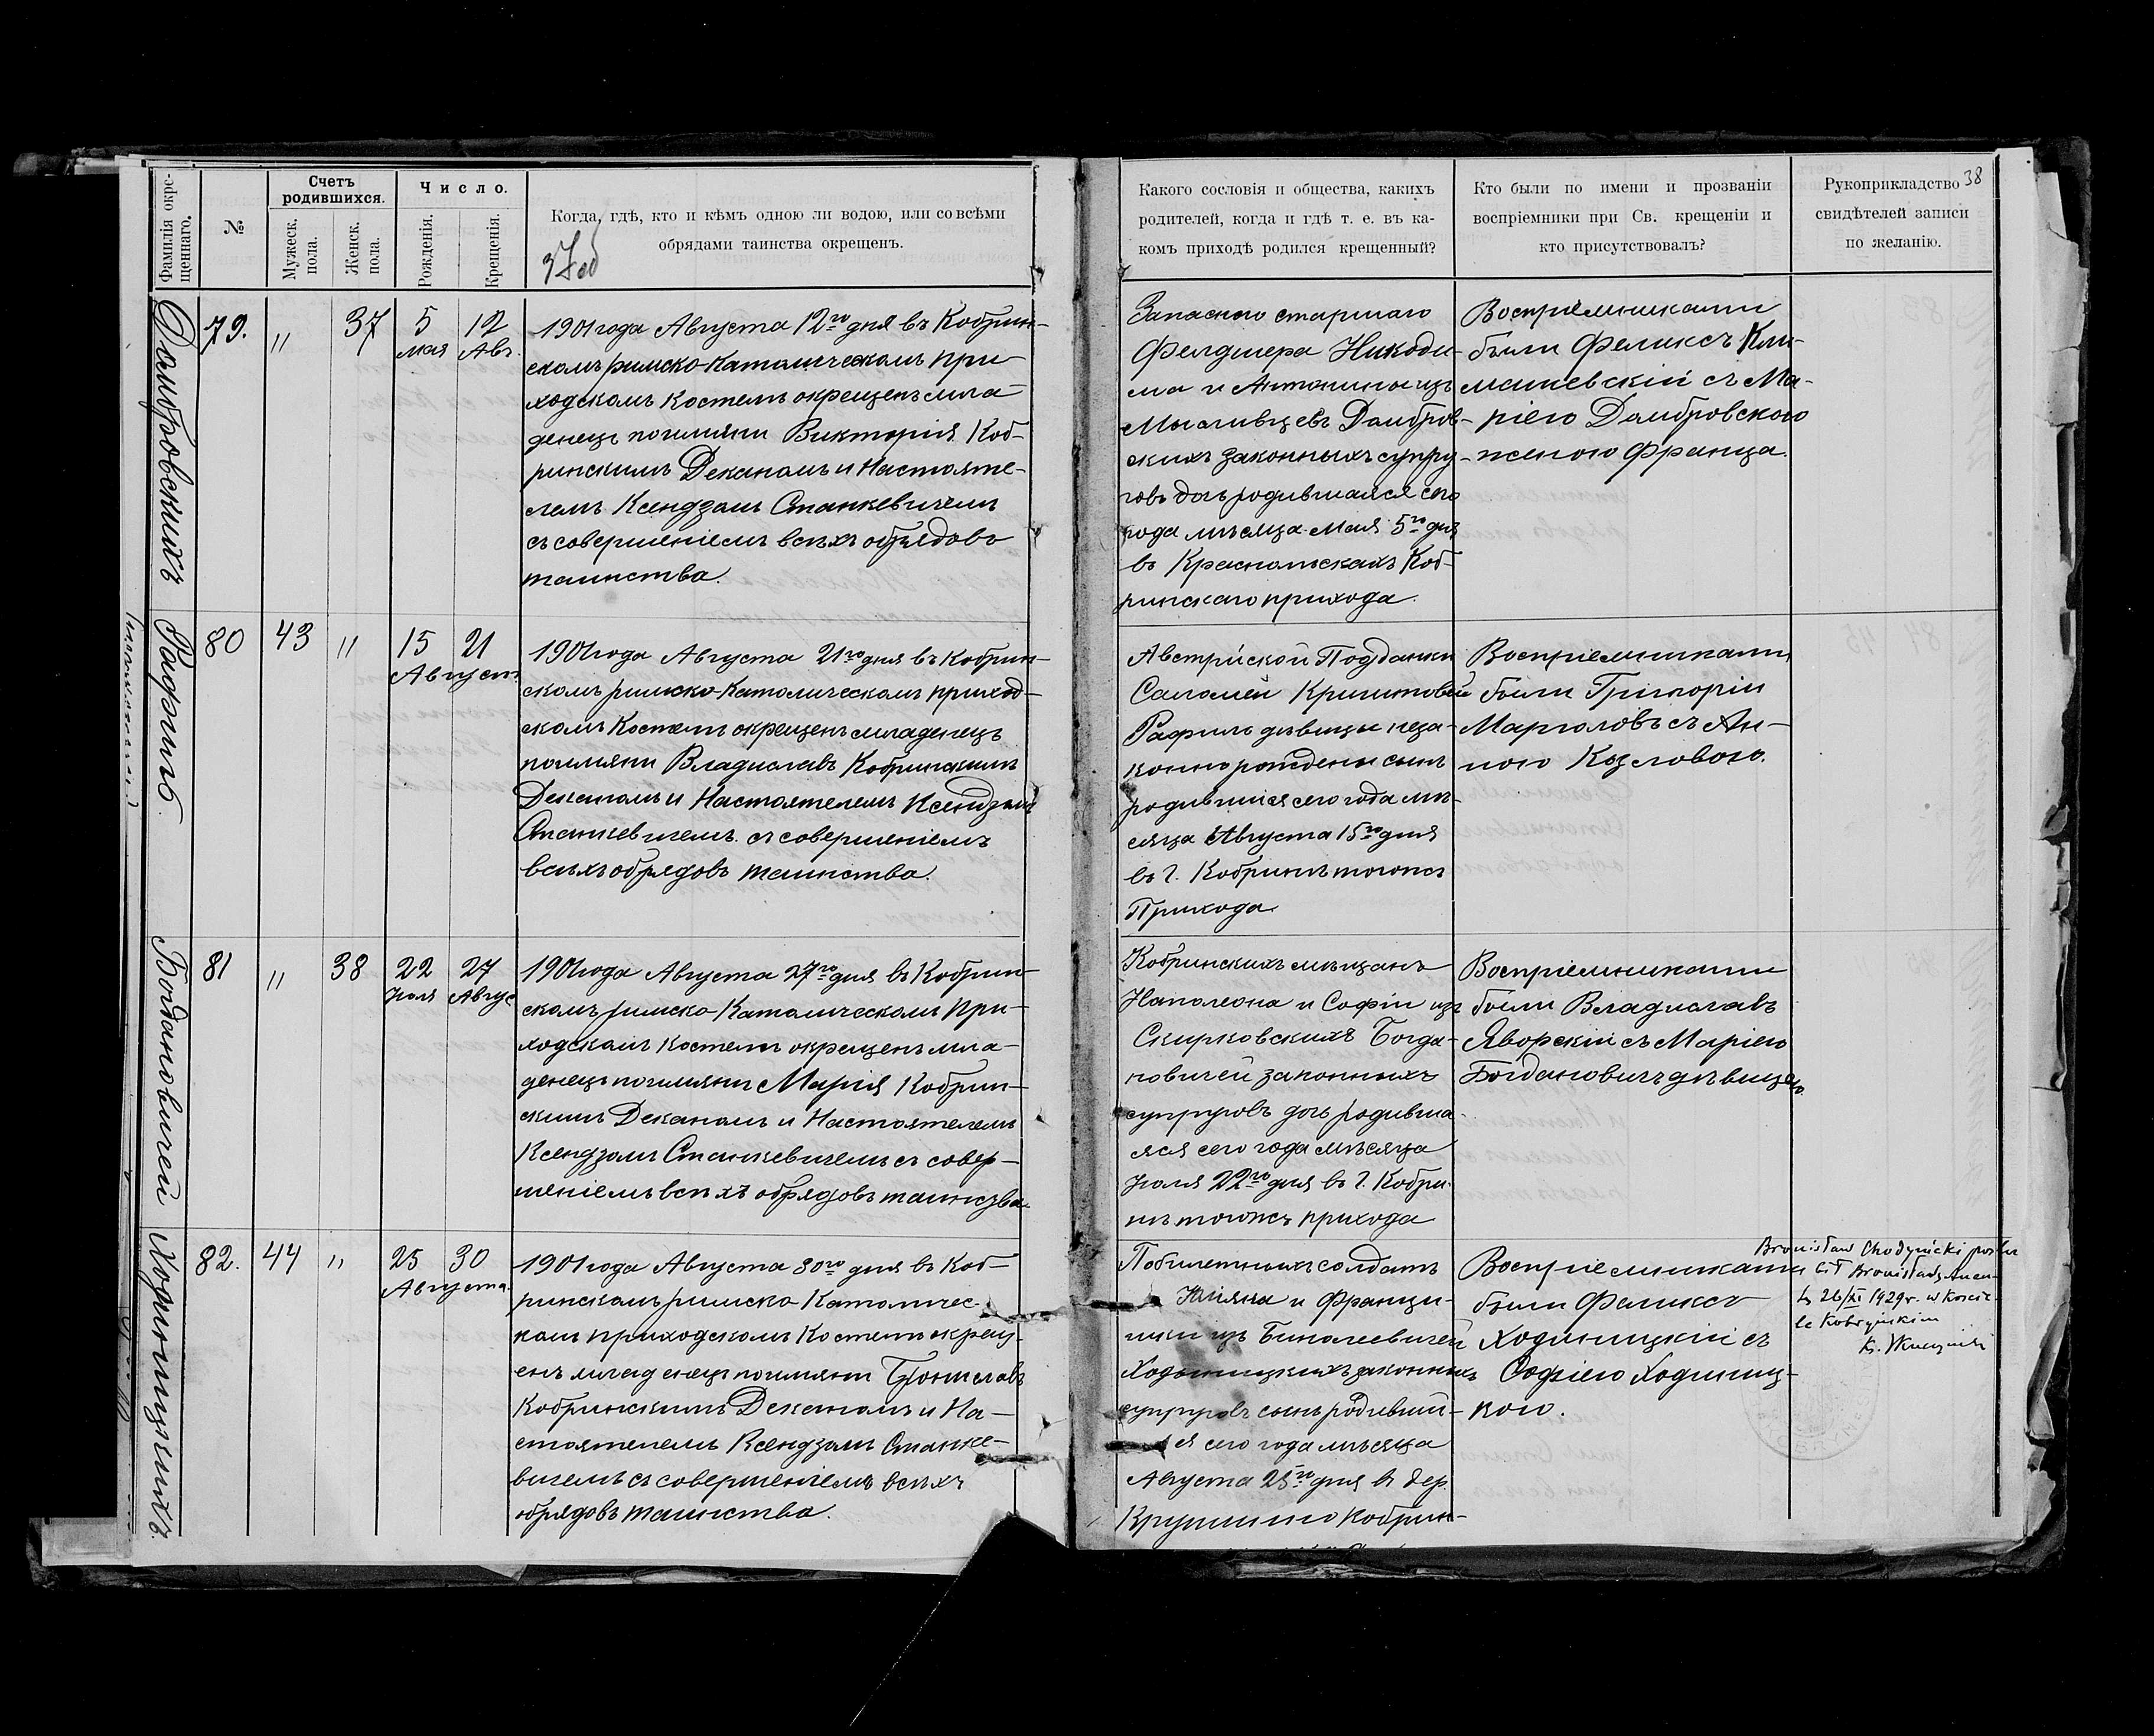 38
Фамилія окре-
щеннаго.
№
Счетъ
родившихся.
Мужеск.
пола.
Женск.
пола.
Число.
Рожденія.
Крещенія.
Когда, гдѣ, кто и кѣмъ одною ли водою, или со всѣми
обрядами таинства окрещенъ.
Какого сословія и общества, какихъ
родителей, когда и гдѣ т. е. въ ка-
комъ приходѣ родился крещенный?
Кто были по имени и прозванію
воспріемники при Св. крещеніи и
кто присутствовалъ?
Рукоприкладство
свидѣтелей записи
по желанію.
Домбровскихъ
79.
"
37
5
мая
12
Авг.
1901 года Августа 12го дня въ Кобрин-
скомъ римско-Католическомъ при
ходскомъ Костелѣ окрещенъ мла
денецъ по имяни Викторія Коб-
ринскимъ Деканомъ и Настояте-
лемъ Ксендзомъ Станкевичемъ
съ совершеніемъ всѣхъ обрядовъ
таинства.
Запаснаго старшаго
Фелдшера Никоди-
ма и Антонины изъ
Домбров-
скихъ законныхъ супру-
говъ дочь родившаяся сего
года мѣсяца Мая 5го дня
въ Коб-
ринскаго прихода.
Воспріемниками
были Феликсъ Кли-
машевскій съ Ма-
ріею Домбровскою
женою Франца.
Рафиль
80
43
"
15
21
Август.
1901 года Августа 21го дня въ Кобрин-
скомъ римско-Католическомъ приход-
скомъ Костелѣ окрещенъ младенецъ
по имяни Владиславъ Кобринскимъ
Деканомъ и Настоятелемъ Ксендзомъ
Станкевичемъ съ совершеніемъ
всѣхъ обрядовъ таинства.
Австрійской Подданки
Саломеи
Рафиль дѣвицы неза-
конно рожденый сынъ
родившійся сего года мѣ-
сяца Августа 15го дня
въ г. Кобринѣ тогожъ
Прихода.
Воспріемниками
были Григорій
съ Ан-
ною Козловою.
Богдановичей
81
"
38
22
Іюля
27
Авгус
1901 года Августа 27го дня въ Кобрин-
скомъ римско-Католическомъ при-
ходскомъ костелѣ окрещенъ мла-
денецъ по имяни Марія Кобрин-
скимъ Деканомъ и Настоятелемъ
Ксендзомъ Станкевичемъ съ совер-
шеніемъ всѣхъ обрядовъ таинства.
Кобринскихъ мѣщанъ
Наполеона и Софіи изъ
Скирковскихъ Богда-
новичей законныхъ
супруговъ дочь родивша-
яся сего года мѣсяца
Іюля 22го дня въ г. Кобри-
нѣ тогожъ прихода
Воспріемниками
были Владиславъ
Яворскій съ Маріею
Богдановичъ дѣвицею.
Ходыницкихъ
82.
44
"
25
30
Августа.
1901 года Августа 30го дня въ Коб-
ринскомъ римско Католичес-
комъ приходскомъ Костелѣ окрещ-
енъ младенецъ по имяни Брониславъ
Кобринскимъ Деканомъ и На-
стоятелемъ Ксендзомъ Станке-
вичемъ съ совершеніемъ всѣхъ
обрядовъ таинства.
солдатъ
и Франци-
шки изъ
Ходыницкихъ законныхъ
супруговъ сынъ родивший-
ся сего года мѣсяца
Августа 25го дня въ дер.
Кобрин-
Воспріемниками
были Феликсъ
Ходыницкій съ
Софіею Ходыниц-
кою.
Bronisław Chodynicki
26/XI 1929 r. w Kości-
le Kobryńskim